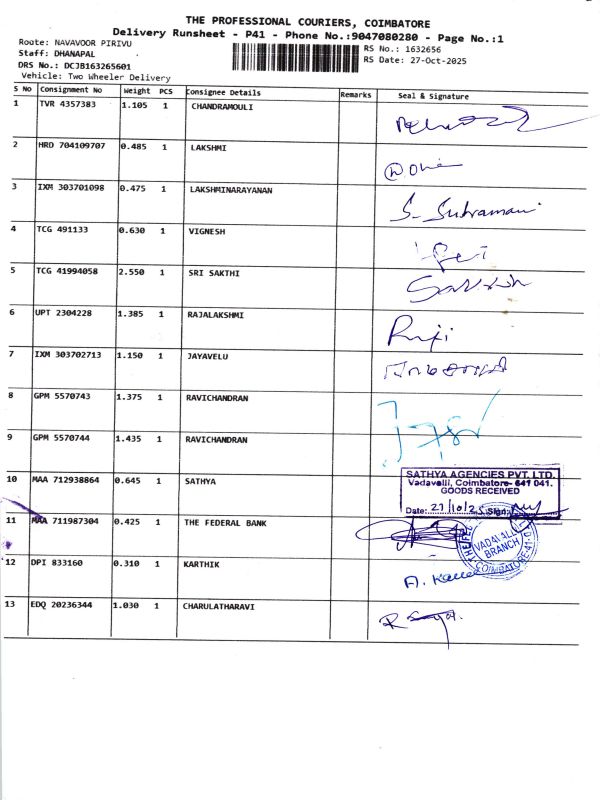 THE PROFESSIONAL COURIERS, COIMBATORE
Delivery Runsheet - P41 - Phone No.:9047080280 - Page No.:1
Route: NAVAVOOR PIRIVU
Staff: DHANAPAL
DRS No.: DCJB163265601
Vehicle: Two Wheeler Delivery
RS No.: 1632656
RS Date: 27-Oct-2025
S No Consignment No Weight PCS Consignee Details Remarks Seal & Signature
1 TVR 4357383 1.105 1 CHANDRAMOULI
2 HRD 704109707 0.485 1 LAKSHMI
3 IXM 303701098 0.475 1 LAKSHMINARAYANAN S. Subramani
4 TCG 491133 0.630 1 VIGNESH
5 TCG 41994058 2.550 1 SRI SAKTHI
6 UPT 2304228 1.385 1 RAJALAKSHMI
7 IXM 303702713 1.150 1 JAYAVELU
8 GPM 5570743 1.375 1 RAVICHANDRAN
9 GPM 5570744 1.435 1 RAVICHANDRAN
10 MAA 712938864 0.645 1 SATHYA
SATHYA AGENCIES PVT. LTD.
Vadavalli, Coimbatore- 641 041.
GOODS RECEIVED
Date: 27/10/25 Sign:
11 MAA 711987304 0.425 1 THE FEDERAL BANK
VADAVALLI
BRANCH
12 DPI 833160 0.310 1 KARTHIK
13 EDQ 20236344 1.030 1 CHARULATHARAVI